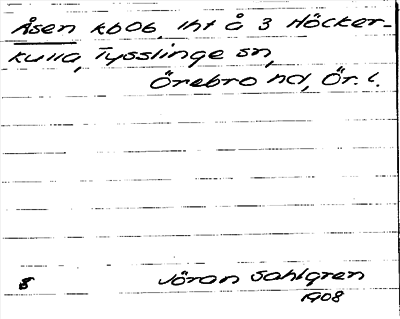 Åsen kbOb. lht å 3 Höcker-
kulla, Tysslinge sn,
Örebro hd, Ör. l.
8 Jöran Sahlgren
1908